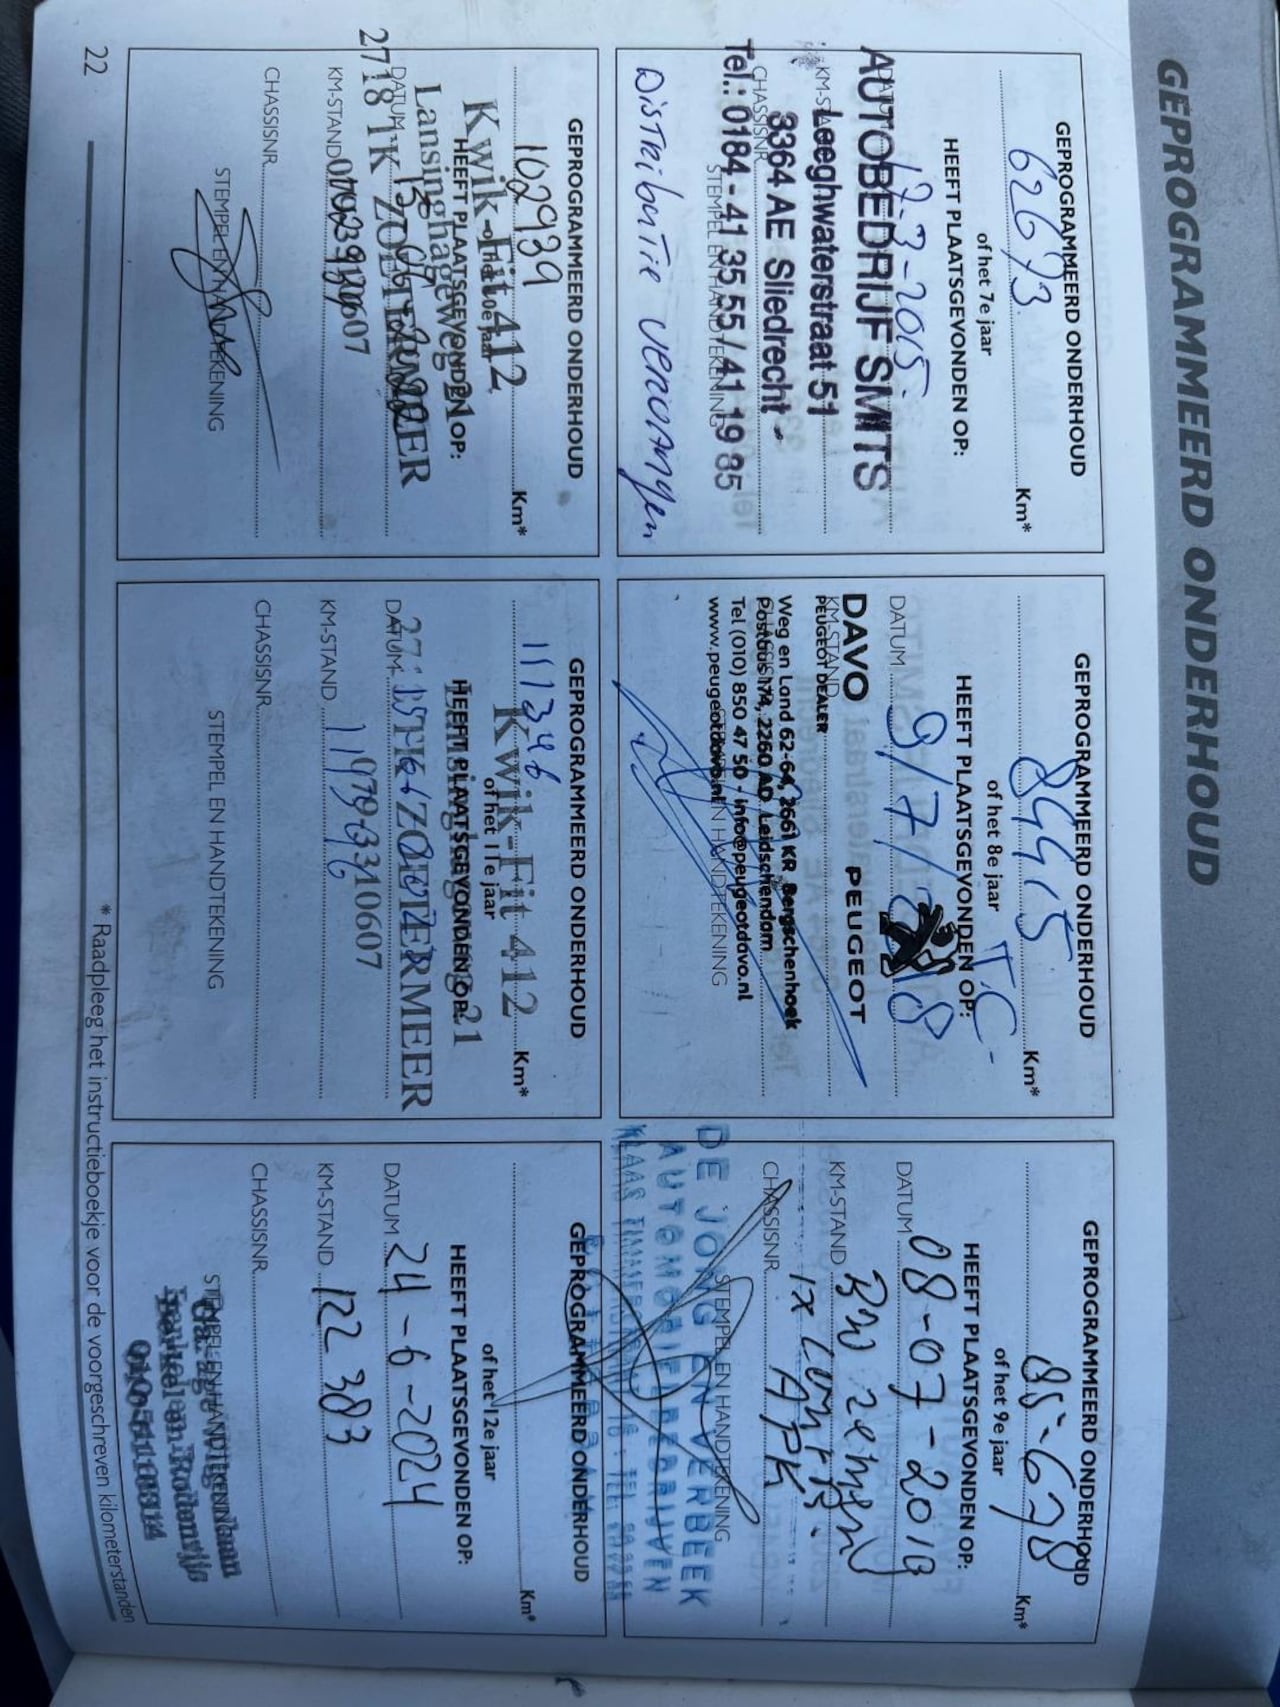 GEPROGRAMMEERD ONDERHOUD
GEPROGRAMMEERD ONDERHOUD
62673 Km*
of het 7e jaar
HEEFT PLAATSGEVONDEN OP:
3-2015
AUTOBEDRIJF SMITS
Leeghwaterstraat 51
3364 AE Sliedrecht -
CHASSISNR
Tel.: 0184 - 41 35 55 / 41 19 85
STEMPEL EN HANDTEKENING
Distributie vervangen
GEPROGRAMMEERD ONDERHOUD
84415 Km*
of het 8e jaar
HEEFT PLAATSGEVONDEN OP:
DATUM 9/7/
DAVO PEUGEOT
KM-STAND
PEUGEOT DEALER
Weg en Land 62-64, 2661 KR Bergschenhoek
Postbus 174, 2260 AD Leidschendam
Tel (010) 850 47 50 - info@peugeotdavo.nl
www.peugeotdavo.nl
HANDTEKENING
GEPROGRAMMEERD ONDERHOUD
85-678 Km*
of het 9e jaar
HEEFT PLAATSGEVONDEN OP:
DATUM 08-07-2019
KM-STAND
1x
CHASSISNR. APK
STEMPEL EN HANDTEKENING
DE JONG EN VERBEEK
AUTOMOBIELBEDRIJVEN
GEPROGRAMMEERD ONDERHOUD
102939 Km*
Kwik-Fit 412
HEEFT PLAATSGEVONDEN OP:
Lansinghageweg 21
DATUM
2718 TK ZOETERMEER
KM-STAND
CHASSISNR
STEMPEL EN HANDTEKENING
GEPROGRAMMEERD ONDERHOUD
111346 Km*
Kwik-Fit 412
of het 11e jaar
HEEFT PLAATSGEVONDEN OP:
DATUM
ZOETERMEER
KM-STAND
CHASSISNR.
STEMPEL EN HANDTEKENING
GEPROGRAMMEERD ONDERHOUD
Km*
of het 12e jaar
HEEFT PLAATSGEVONDEN OP:
DATUM 24-6-2024
KM-STAND 122 383
CHASSISNR.
STEMPEL EN HANDTEKENING
* Raadpleeg het instructieboekje voor de voorgeschreven kilometerstanden
22